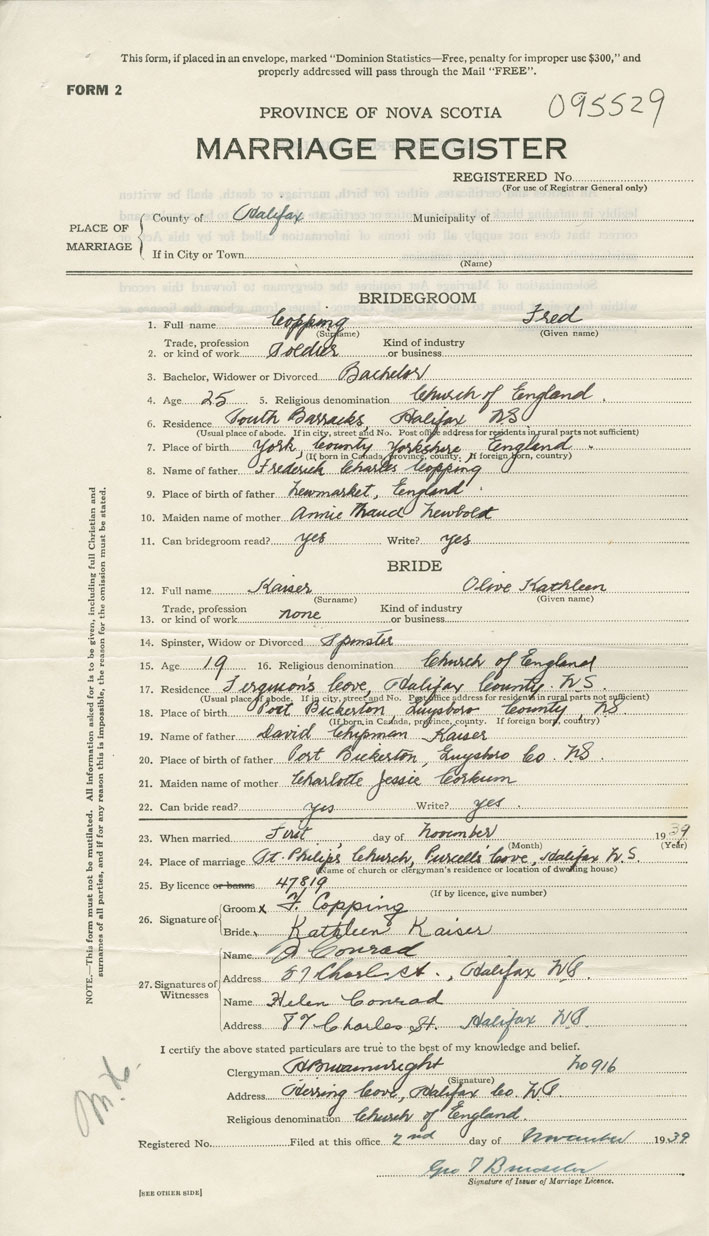 This form, if placed in an envelope, marked "Dominion Statistics—Free, penalty for improper use $300," and
properly addressed will pass through the Mail "FREE".
FORM 2
PROVINCE OF NOVA SCOTIA 095529
MARRIAGE REGISTER
REGISTERED No.
(For use of Registrar General only)
PLACE OF MARRIAGE
County of Halifax Municipality of
If in City or Town
(Name)
BRIDEGROOM
1. Full name Copping Fred
(Surname) (Given name)
2. Trade, profession or kind of work Soldier Kind of industry or business
3. Bachelor, Widower or Divorced Bachelor
4. Age 25 5. Religious denomination Church of England
6. Residence South Barracks, Halifax NS
(Usual place of abode. If in city, street and No. Post office address for residents in rural parts not sufficient)
7. Place of birth York, County Yorkshire England
(If born in Canada, province, county. If foreign born, country)
8. Name of father Frederick Charles Copping
9. Place of birth of father Newmarket, England
10. Maiden name of mother Annie Maud Newbold
11. Can bridegroom read? yes Write? yes
BRIDE
12. Full name Kaiser Olive Kathleen
(Surname) (Given name)
13. Trade, profession or kind of work none Kind of industry or business
14. Spinster, Widow or Divorced Spinster
15. Age 19 16. Religious denomination Church of England
17. Residence Ferguson's Cove, Halifax County, N.S.
(Usual place of abode. If in city, street and No. Post office address for residents in rural parts not sufficient)
18. Place of birth Port Bickerton, Guysboro County, NS
(If born in Canada, province, county. If foreign born, country)
19. Name of father David Chipman Kaiser
20. Place of birth of father Port Bickerton, Guysboro Co. NS
21. Maiden name of mother Charlotte Jessie Corkum
22. Can bride read? yes Write? yes
23. When married First day of November 1939
(Month) (Year)
24. Place of marriage St. Philip's Church, Purcell's Cove, Halifax N.S.
(Name of church or clergyman's residence or location of dwelling house)
25. By licence or banns 47819
(If by licence, give number)
26. Signature of
Groom x F. Copping
Bride x Kathleen Kaiser
27. Signatures of Witnesses
Name J Conrad
Address 87 Charles St., Halifax NS.
Name Helen Conrad
Address 87 Charles St. Halifax NS.
I certify the above stated particulars are true to the best of my knowledge and belief.
Clergyman No 916
(Signature)
Address Herring Cove, Halifax Co. NS
Religious denomination Church of England.
Registered No. Filed at this office 2nd day of November 1939
Geo T
Signature of Issuer of Marriage Licence.
[SEE OTHER SIDE]
NOTE.—This form must not be mutilated. All information asked for is to be given, including full Christian and
surnames of all parties, and if for any reason this is impossible, the reason for the omission must be stated.